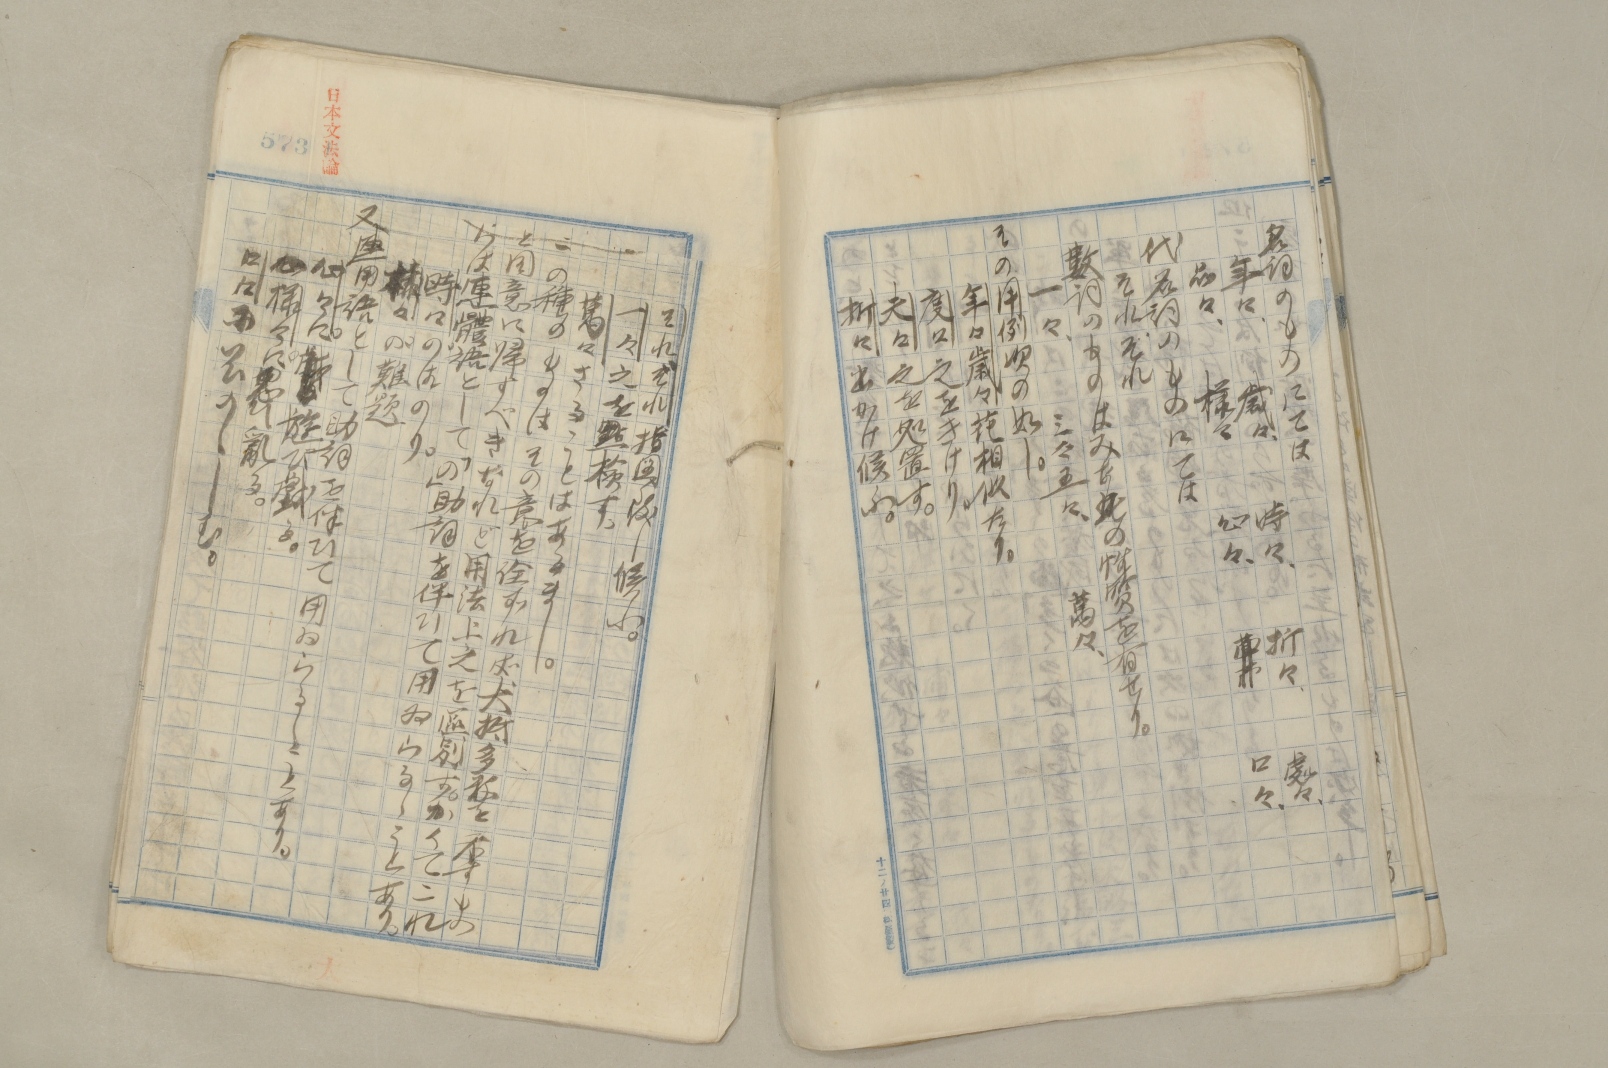 名詞のものにては
年々、歳々、時々、折々、處々、
品々、様々、心々、口々、
代名詞のものにては
それぞれ
數詞のものはみな此の性質を有せり。
一々、三々五々、萬々、
その用例次の如し。
年々歳々花相似たり。
度々之をきけり。
夫々之を処置す。
折々出かけ候ふ。
十二ノ廿四
日本文法論
573
それぞれ指圖致し候ふ。
一々之を點檢す。
萬々さることはあるまし。
この種のものはその意を全すれば大抵多數を
と同意に帰すべきなれど用法上之を區別す。かくてこれ
らは準體語として「の」助詞を伴ひて用ゐらるゝことあり。
時々のはのり。
様々の難題
又準用語として助詞を伴ひて用ゐらるゝことあり。
心々に遊び戯る。
様々に思ひ亂る。
口々に